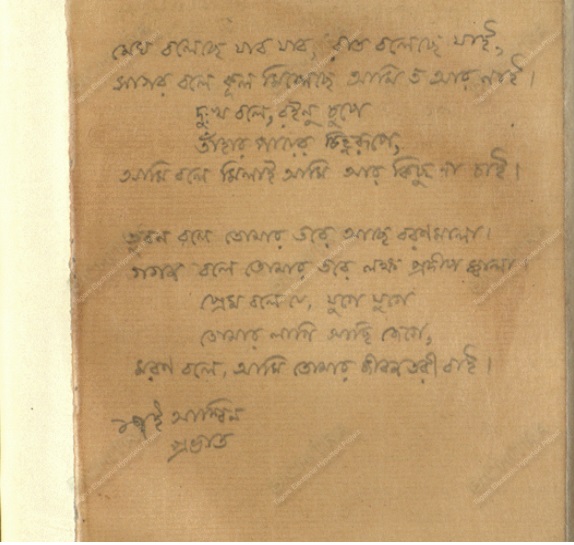 মেঘ বলেছে যাব যাব, রাত বলেছে যাই,
সাগর বলে কূল মিলেছে আমি ত আর নাই।
দুঃখ বলে, রইনু চুপে
তাঁহার পায়ের চিহ্নরূপে,
আমি বলে মিলাই আমি আর কিছু না চাই।
ভুবন বলে তোমার তরে আছে বরণমালা।
গগন বলে তোমার তরে লক্ষ প্রদীপ জ্বালা।
প্রেম বলে যে, যুগে যুগে
তোমার লাগি আছি জেগে,
মরণ বলে, আমি তোমার জীবনতরী বাই।
আশ্বিন
প্রভাত